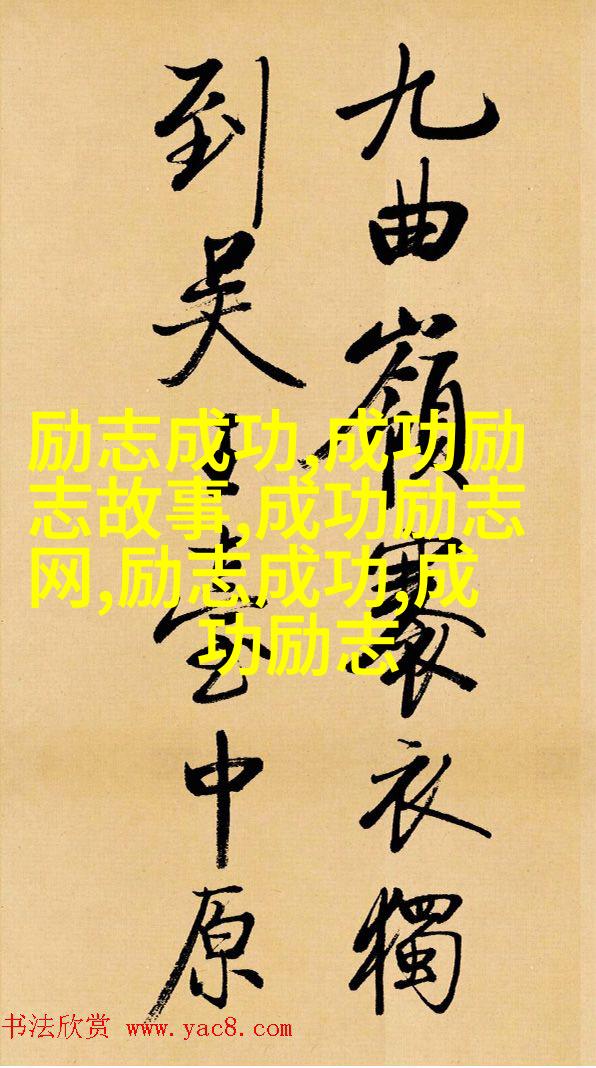 九曲嶺褰衣獨
到吳王臺中原
励志成功,成功励
志故事,成功励志
网,励志成功,成
功励志
书法欣赏 www.yac8.com